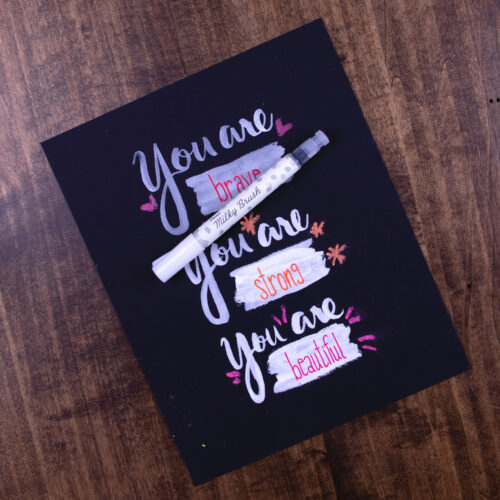 You are
brave
Milky Brush
You are
strong
You are
beautiful